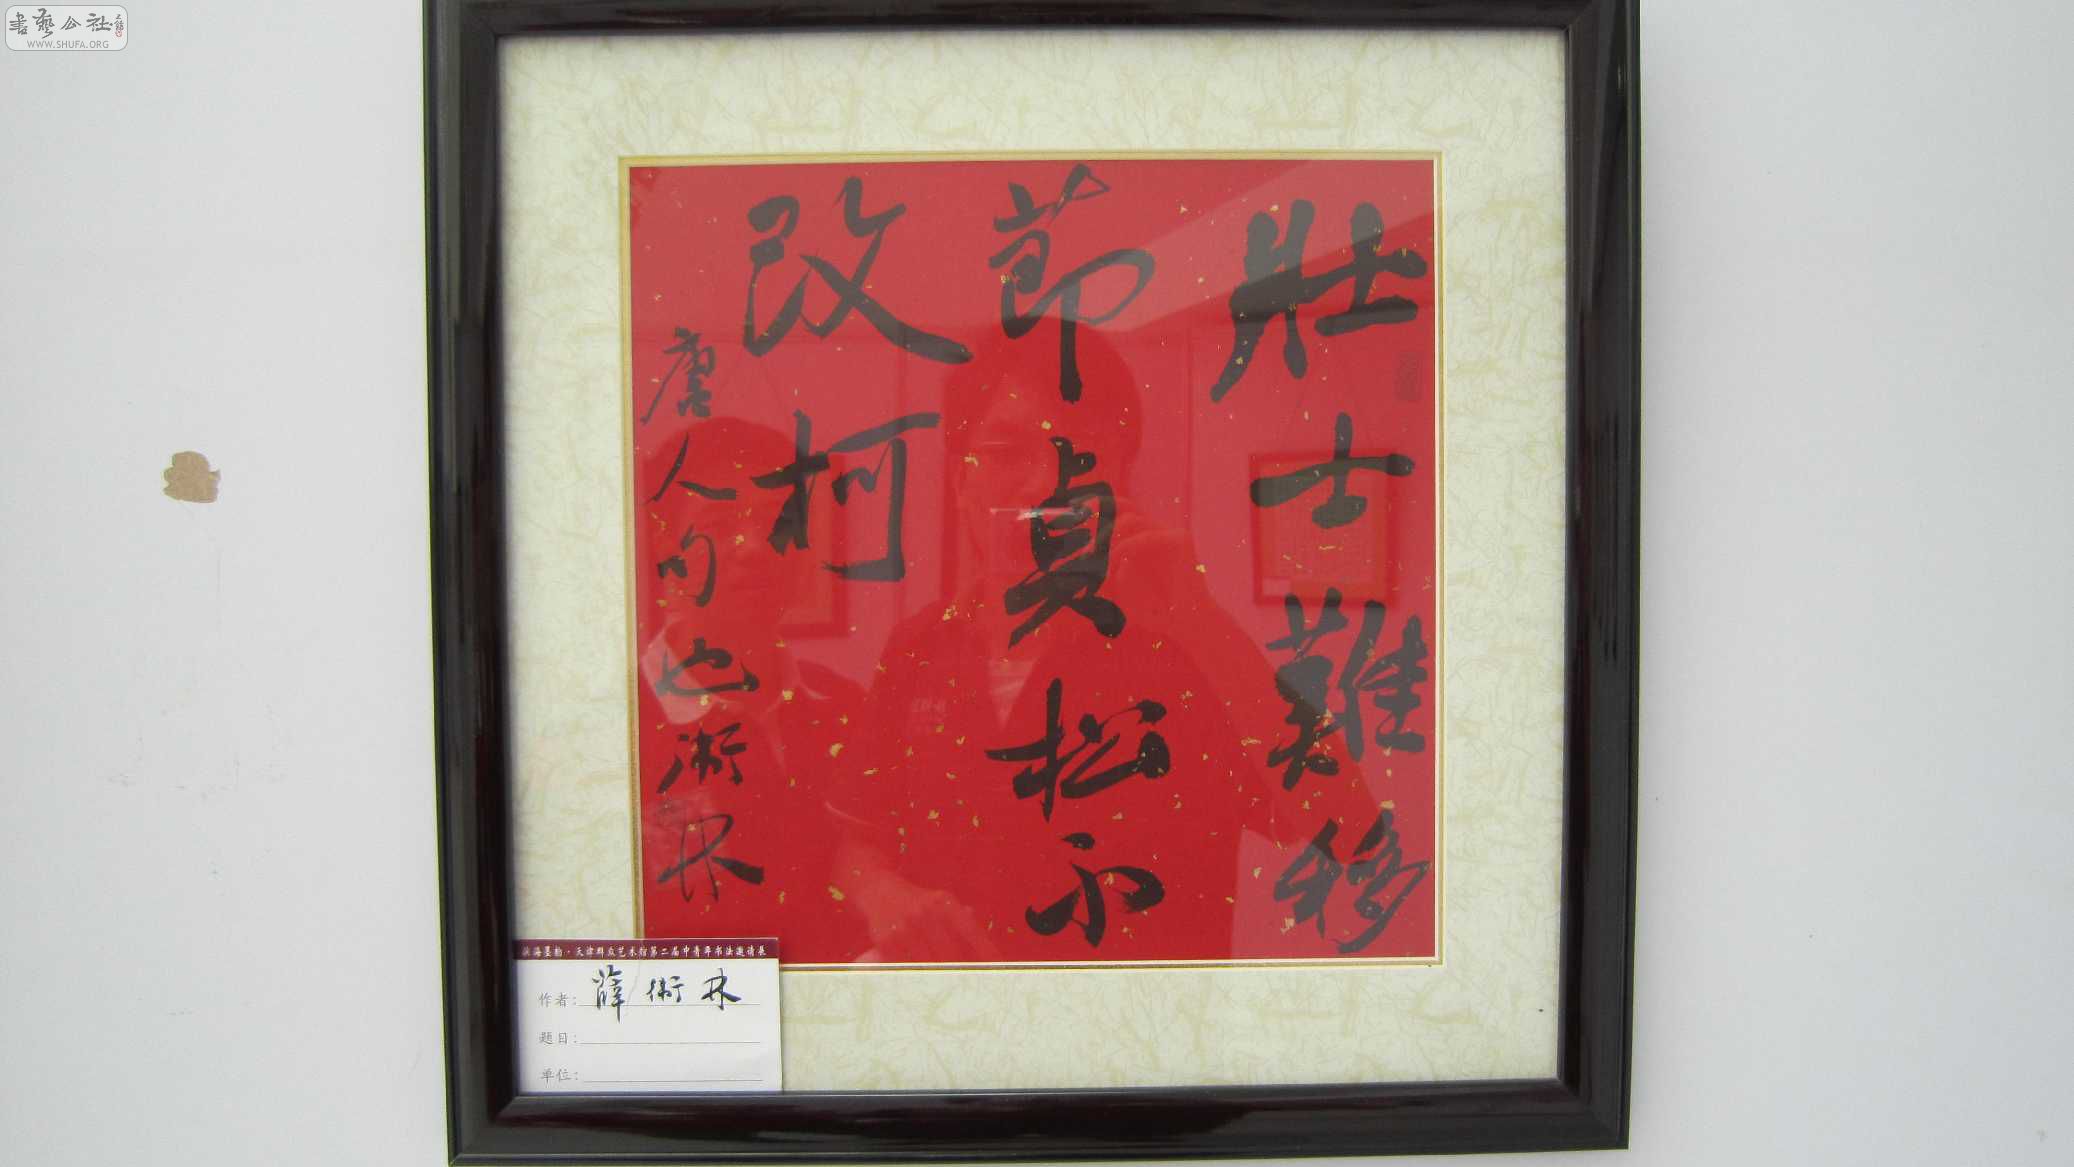 壯士難移
莭貞松不
改柯
唐人句也術林
滨海墨韵·天津群众艺术馆第二届中青年书法邀请展
作者：薛術林
题目：
单位：
書藝公社
WWW.SHUFA.ORG